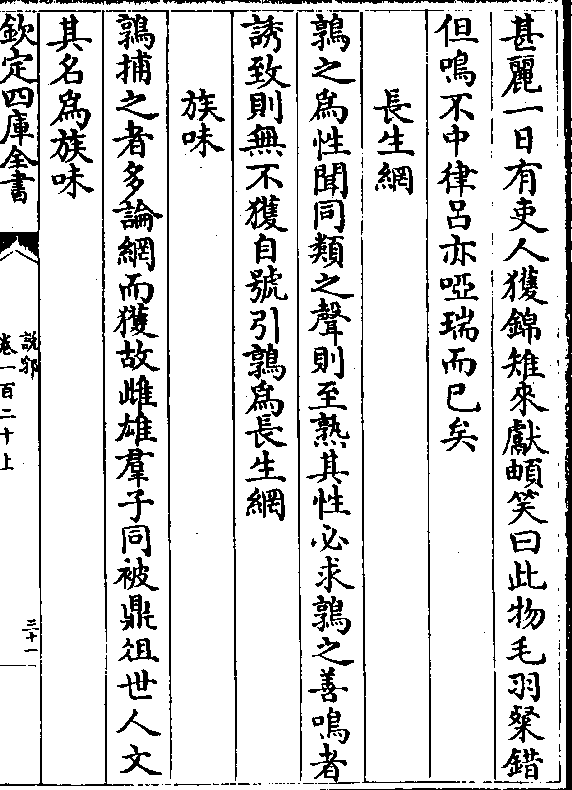 甚麗一日有吏人獲錦雉來獻頔笑曰此物毛羽粲錯
但鳴不中律呂亦啞瑞而已矣
長生網
鶉之為性聞同類之聲則至熟其性必求鶉之善鳴者
誘致則無不獲自號引鶉為長生網
族味
鶉捕之者多論網而獲故雌雄羣子同被鼎俎世人文
其名為族味
欽定四庫全書
說郛
卷一百二十上
三十一